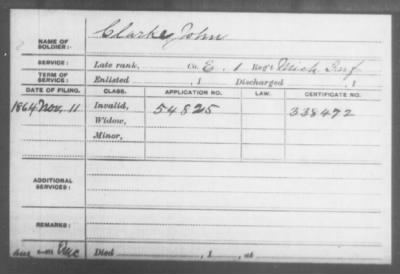 NAME OF SOLDIER: Clarke, John
SERVICE: Late rank, Co. E. 1 Reg't Mich. Inf
TERM OF SERVICE: Enlisted , 1 Discharged , 1
DATE OF FILING. CLASS. APPLICATION NO. LAW. CERTIFICATE NO.
1864 Nov. 11 Invalid, 54825 338472
Widow,
Minor,
ADDITIONAL SERVICES:
REMARKS:
Died , 1 , at